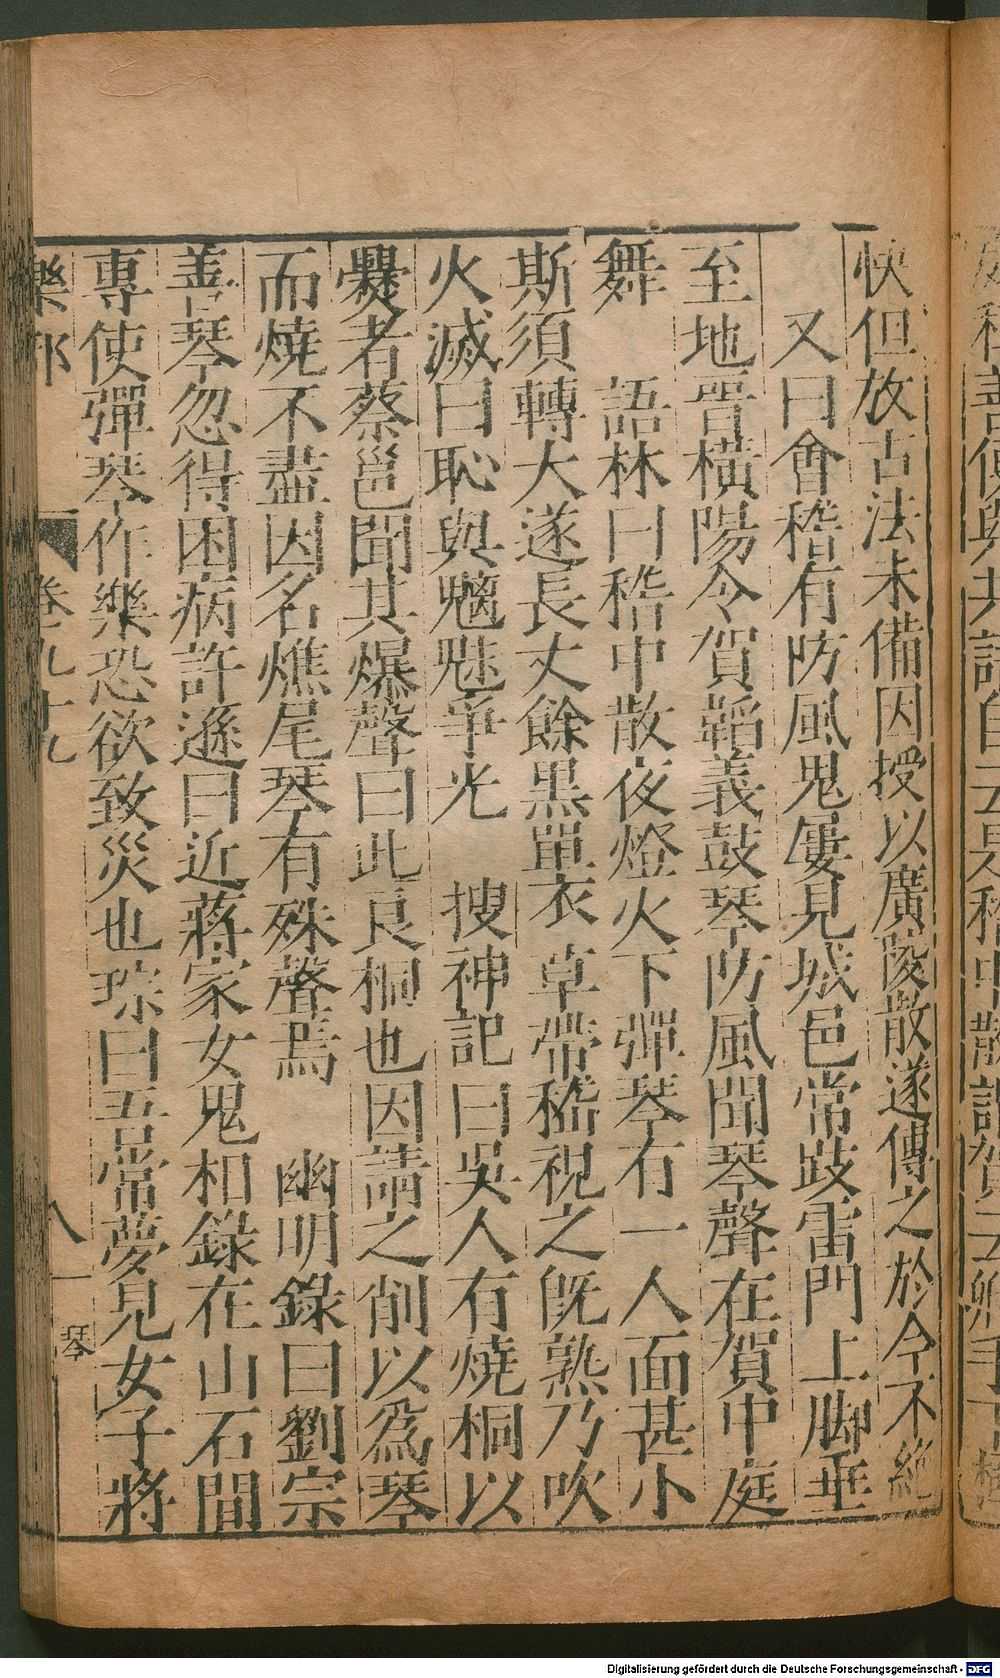 快但放古法未備因授以廣陵散遂傳之於今不絕
又曰會稽有防風鬼屢見城邑常跂雷門上脚垂
至地晉橫陽令賀韜義鼓琴防風聞琴聲在賀中庭
舞　語林曰嵇中散夜燈火下彈琴有一人面甚小
斯須轉大遂長丈餘黑單衣草帶嵇視之旣熟乃吹
火滅曰恥與魑魅爭光　搜神記曰吳人有燒桐以
爨者蔡邕聞其爆聲曰此良桐也因請之削以爲琴
而燒不盡因名燋尾琴有殊聲焉　幽明錄曰劉宗
善琴忽得困病許遜曰近蔣家女鬼相錄在山石間
專使彈琴作樂恐欲致災也琮曰吾常夢見女子將
樂部　卷九十九　八　琴
Digitalisierung gefördert durch die Deutsche Forschungsgemeinschaft - DFG